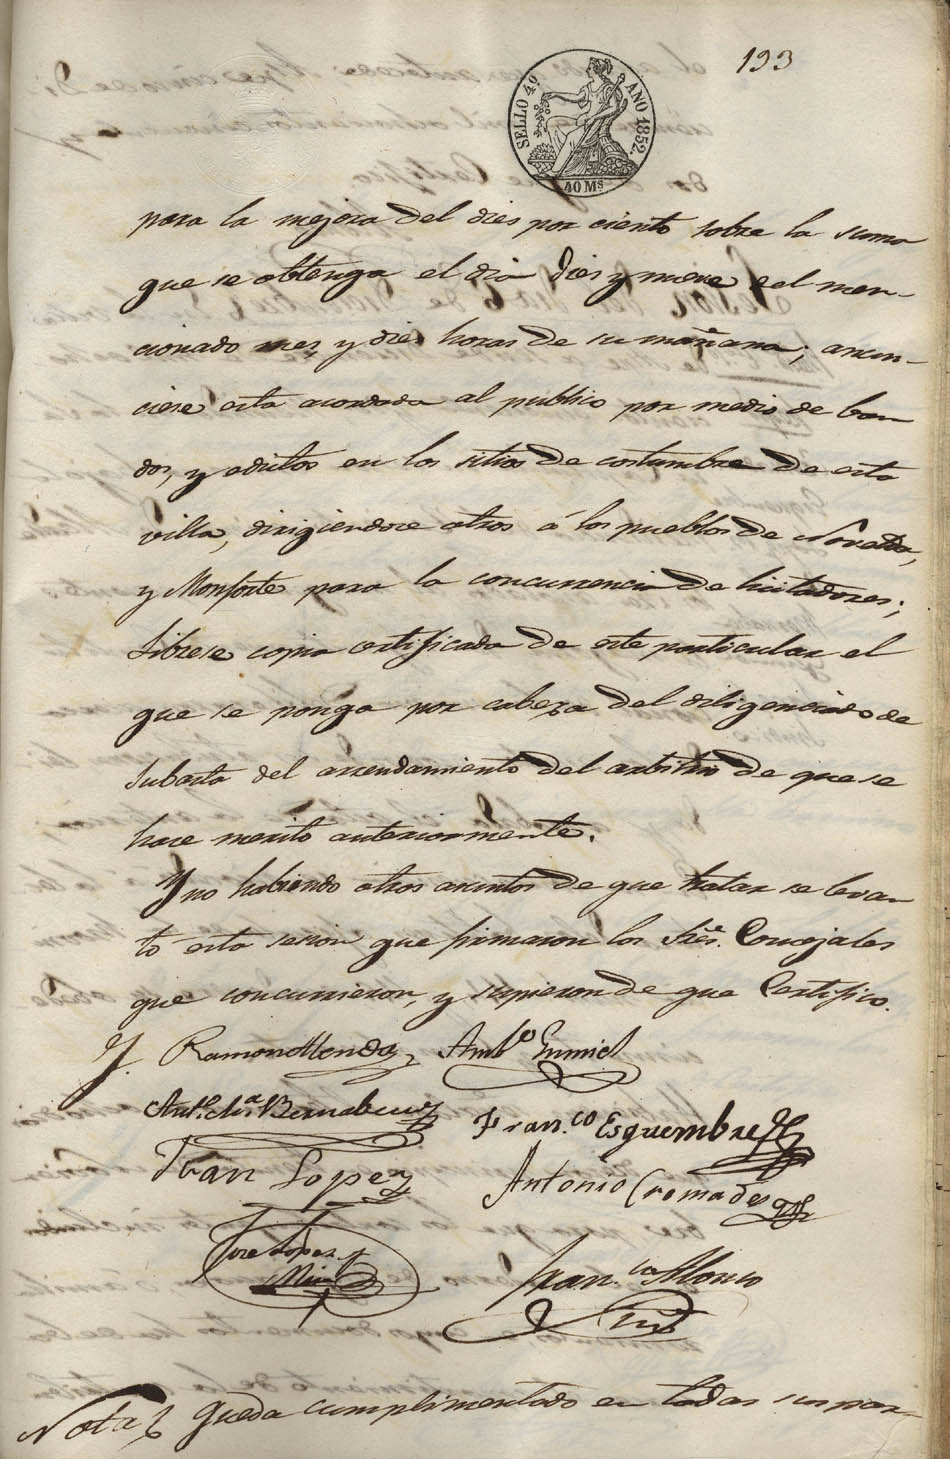 193
SELLO 4º AÑO 1852.
40 Ms
para la mejora del dies por ciento sobre la suma
que se obtenga el dia dies y nueve del men-
cionado mes, y dies horas de su mañana; anun-
ciese esta acordada al publico por medio de ban
dos, y edictos en los sitios de costumbre de esta
villa, dirigiendose otros á los pueblos de Novelda,
y Monforte para la concurrencia de licitadores;
Librese copia certificada de este particular el
que se ponga por cabeza del diligenciado de
subasta del arrendamiento del arbitrio de que se
hace merito anteriormente.
Y no habiendo otros asuntos de que tratar se levan
tó esta sesion que firmaron los Sres. Concejales
que concurrieron, y supieron de que Certifico.
Ramon Mendaz Ambº
Antº Mª Bernabeu Fran.co Esquembre
Juan Lopez
Antonio Cremades
Jose Lopez y
Mira
Fran.co Alonso
Nota Queda cumplimentado en todas sus par-